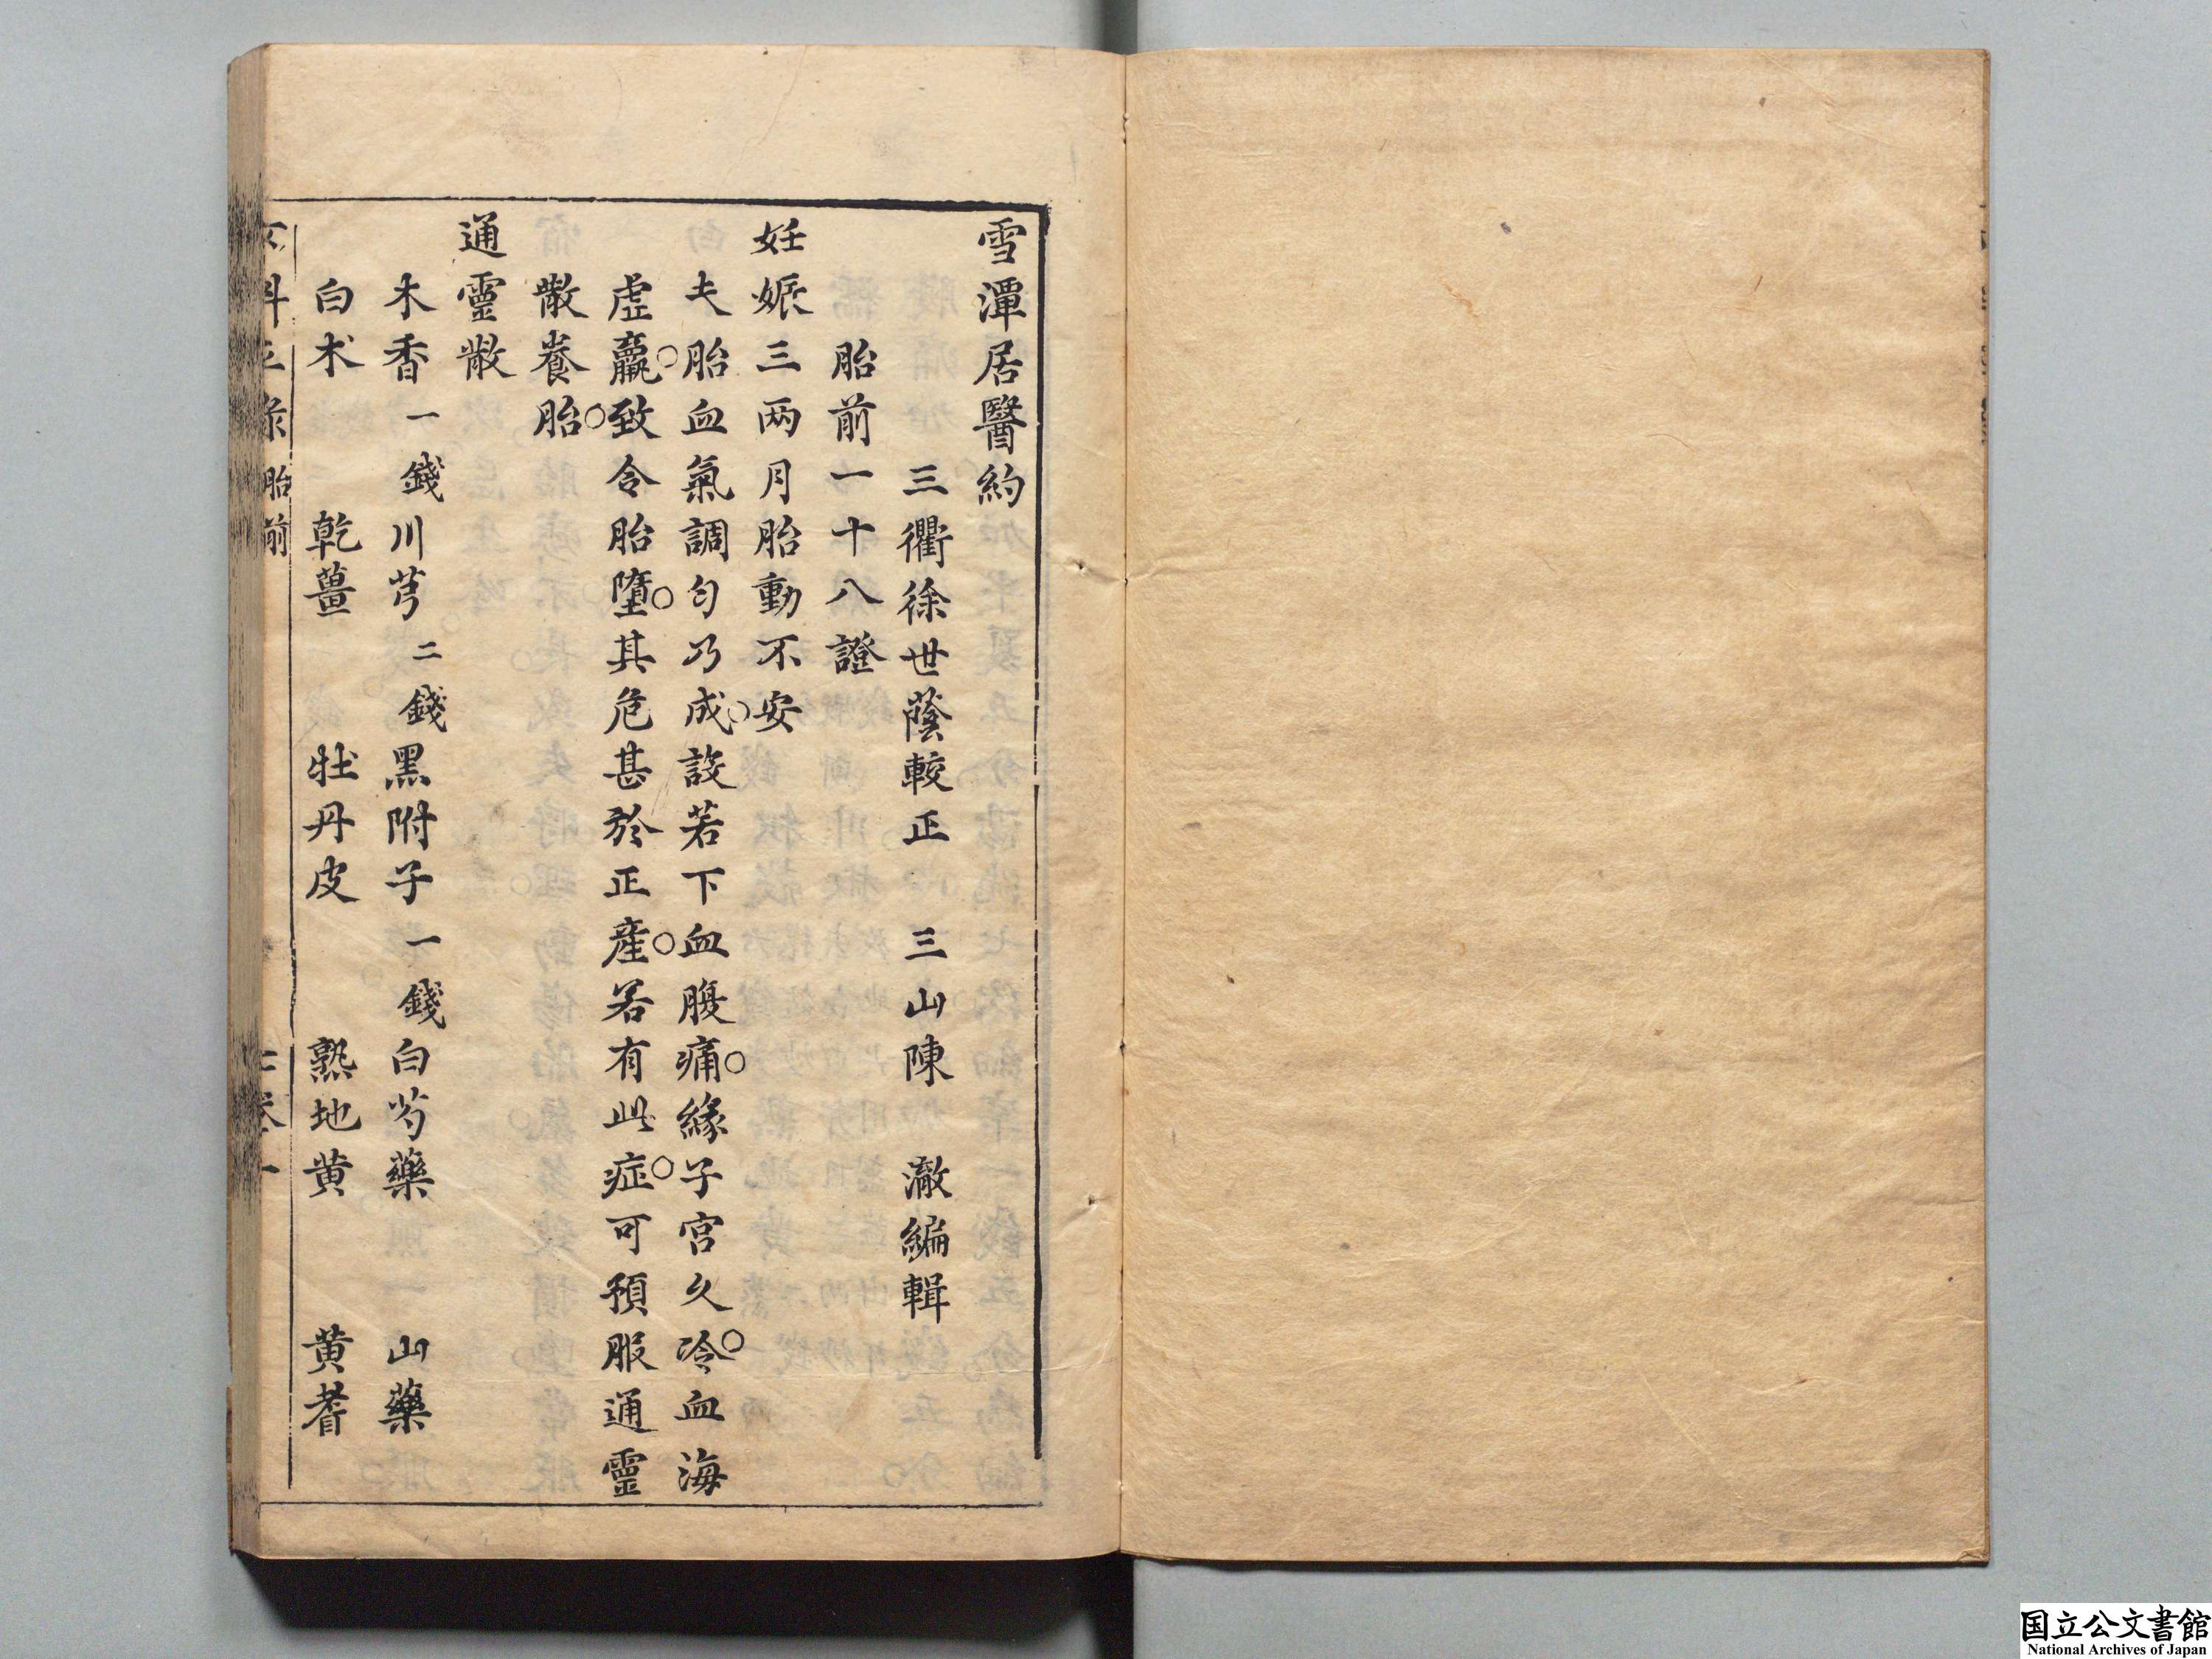 雪潭居醫約
三衢徐世蔭較正　三山陳　澈編輯
胎前一十八證
妊娠三两月胎動不安
夫胎血氣調匀乃成○設若下血腹痛○緣子宮久冷○血海
虛羸○致令胎墮○其危甚於正産○若有此症○可預服通靈
散養胎○
通靈散
木香一錢川芎二錢黑附子一錢白芍藥　山藥
白朮　乾薑　牡丹皮　熟地黄　黄耆
胎前
国立公文書館
National Archives of Japan